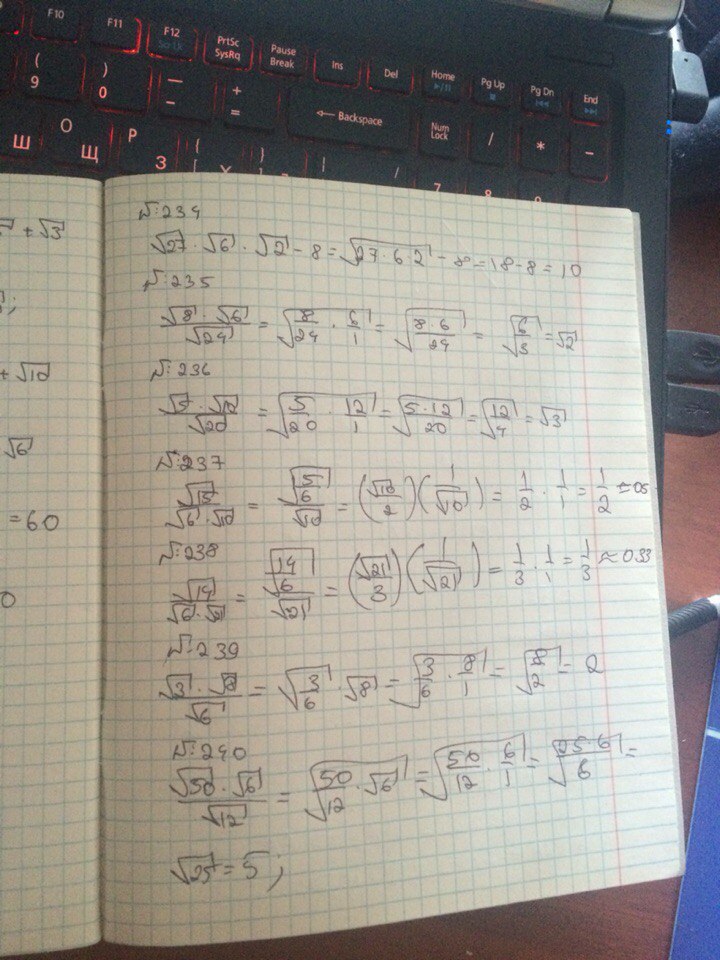 F10 F11 F12 PrtSc SysRq Pause Break Ins Del Home Pg Up Pg Dn End
( 9 ) 0 — - + = ← Backspace Num Lock / * -
Ш О Щ Р З { [ Х } | /
7 8 9
√3
+ √10
√6
= 60
0
№:234
√27 · √6 · √2 - 8 = √27·6·2 - 8 = 18 - 8 = 10
№:235
√8 · √6 / √24 = √8/24 · 6/1 = √8·6/24 = √6/3 = √2
№:236
√5 · √12 / √20 = √5/20 · 12/1 = √5·12/20 = √12/4 = √3
№:237
√15 / √6 · √10 = √5/6 / √10 = (√10/2)(1/√10) = 1/2 · 1/1 = 1/2 = 05
№:238
√14 / √6 · √21 = √14/6 / √21 = (√21/3)(1/√21) = 1/3 · 1/1 = 1/3 ≈ 033
№:239
√3 · √8 / √6 = √3/6 · √8 = √3/6 · 8/1 = √8/2 = 2
№:240
√50 · √6 / √12 = √50/12 · √6 = √50/12 · 6/1 = √25·6/6 =
√25 = 5;